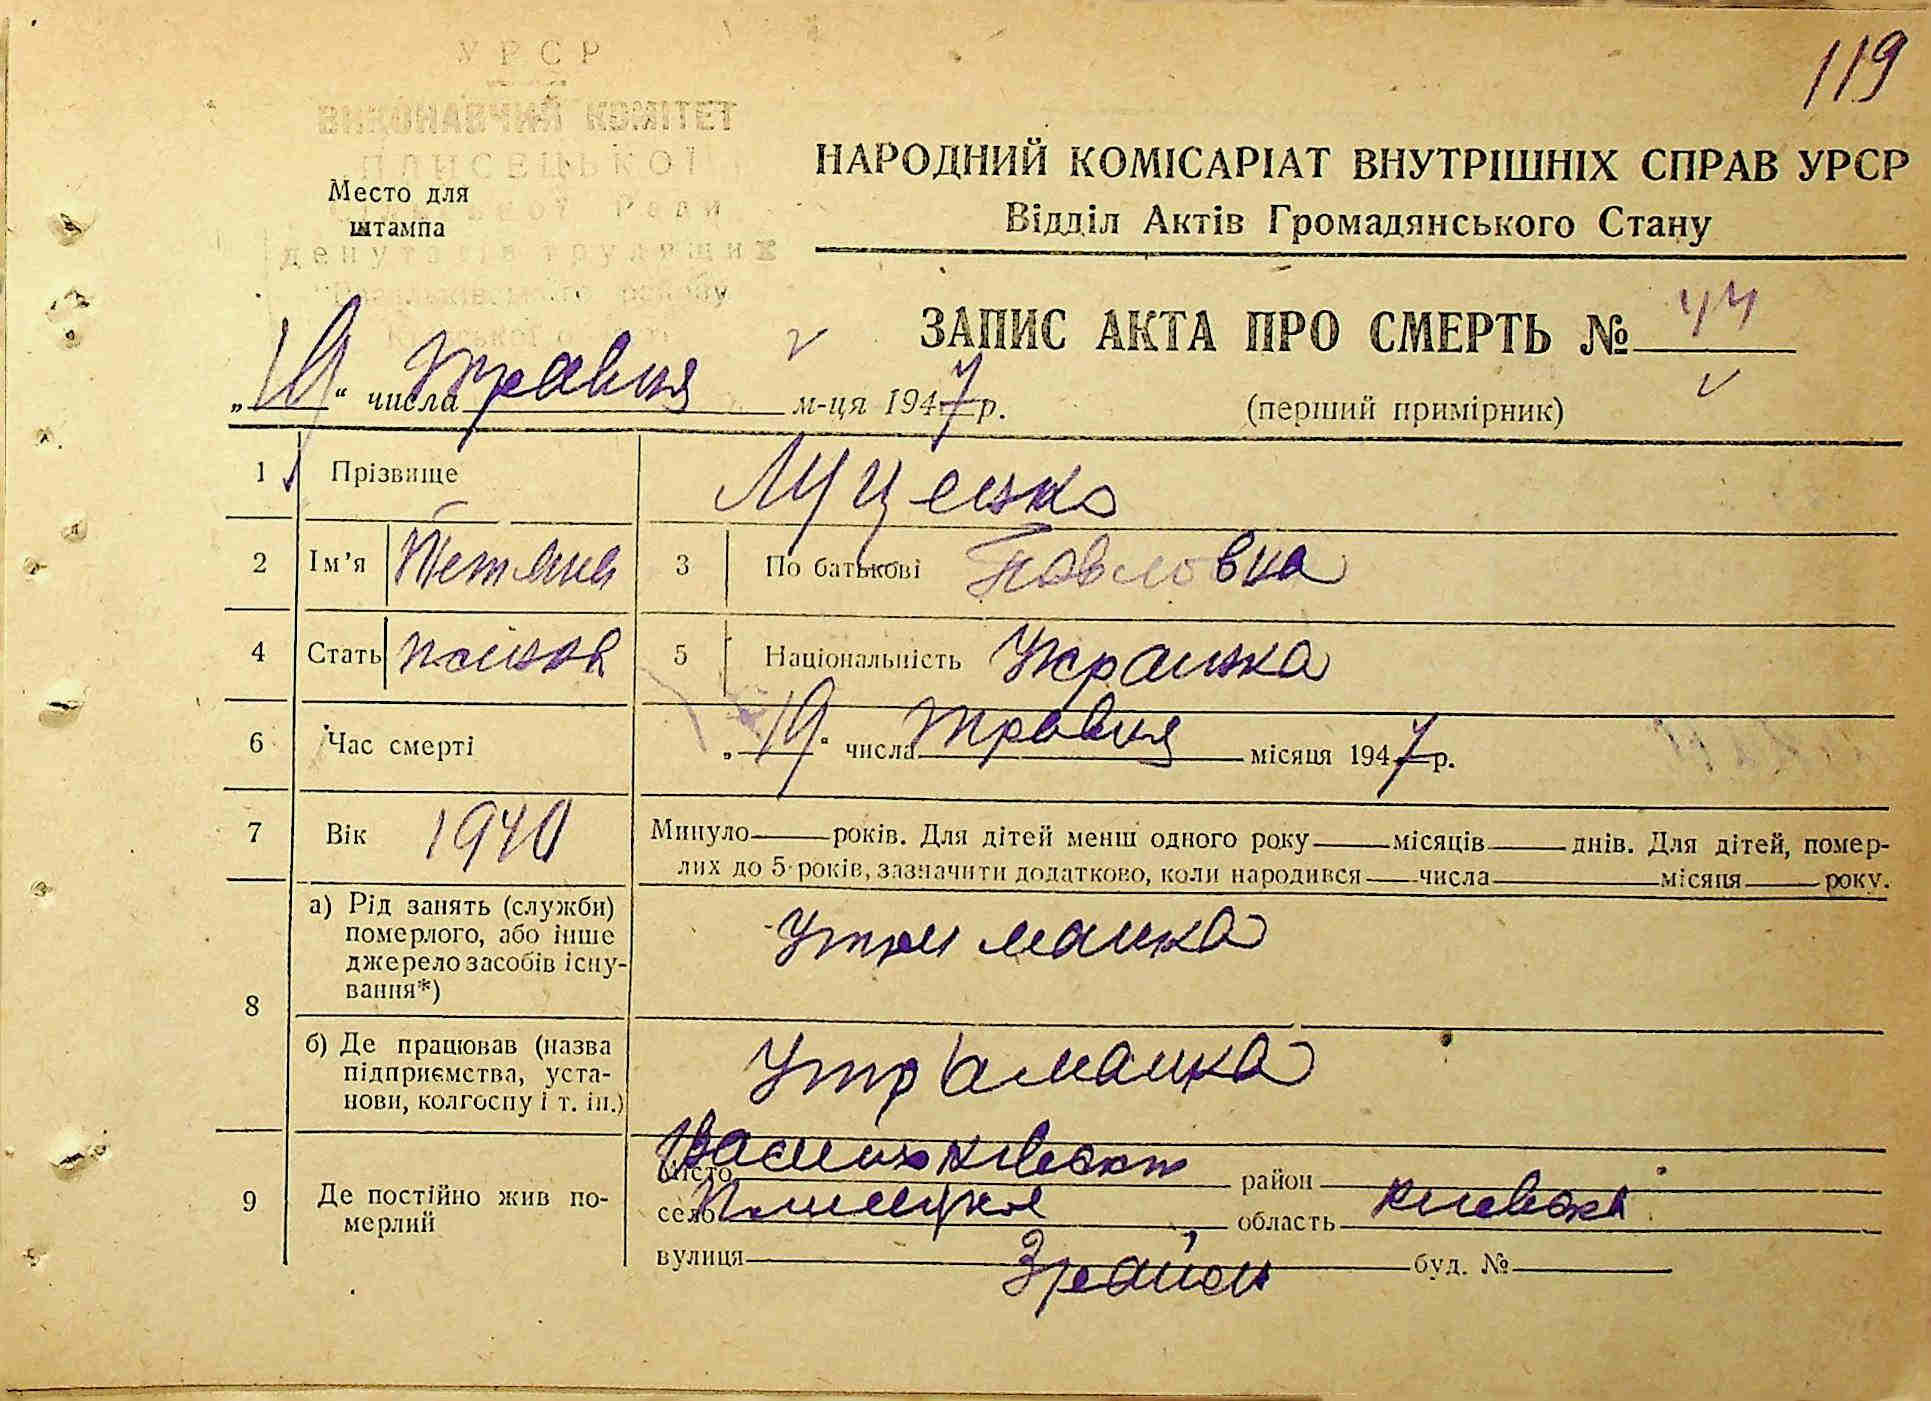 119
УРСР
ВИКОНАВЧИЙ КОМІТЕТ
ПЛИСЕЦЬКОЇ
Ради
депутатів трудящих
району
Место для
штампа
НАРОДНИЙ КОМІСАРІАТ ВНУТРІШНІХ СПРАВ УРСР
Відділ Актів Громадянського Стану
ЗАПИС АКТА ПРО СМЕРТЬ № 44
„19“ числа травня м-ця 1947 р.
(перший примірник)
1 Прізвище Луценко
2 Ім'я Тетяна 3 По батькові Павловна
4 Стать жіноча 5 Національність Украинка
6 Час смерті „19“ числа травня місяця 1947 р.
7 Вік 1940 Минуло років. Для дітей менш одного року місяців днів. Для дітей, помер-
лих до 5 років, зазначити додатково, коли народився числа місяця року.
8 а) Рід занять (служби)
померлого, або інше
джерело засобів існу-
вання*)
Утриманка
б) Де працював (назва
підприємства, уста-
нови, колгоспу і т. ін.)
Утриманка
9 Де постійно жив по-
мерлий
місто район
село область
вулиця буд. №